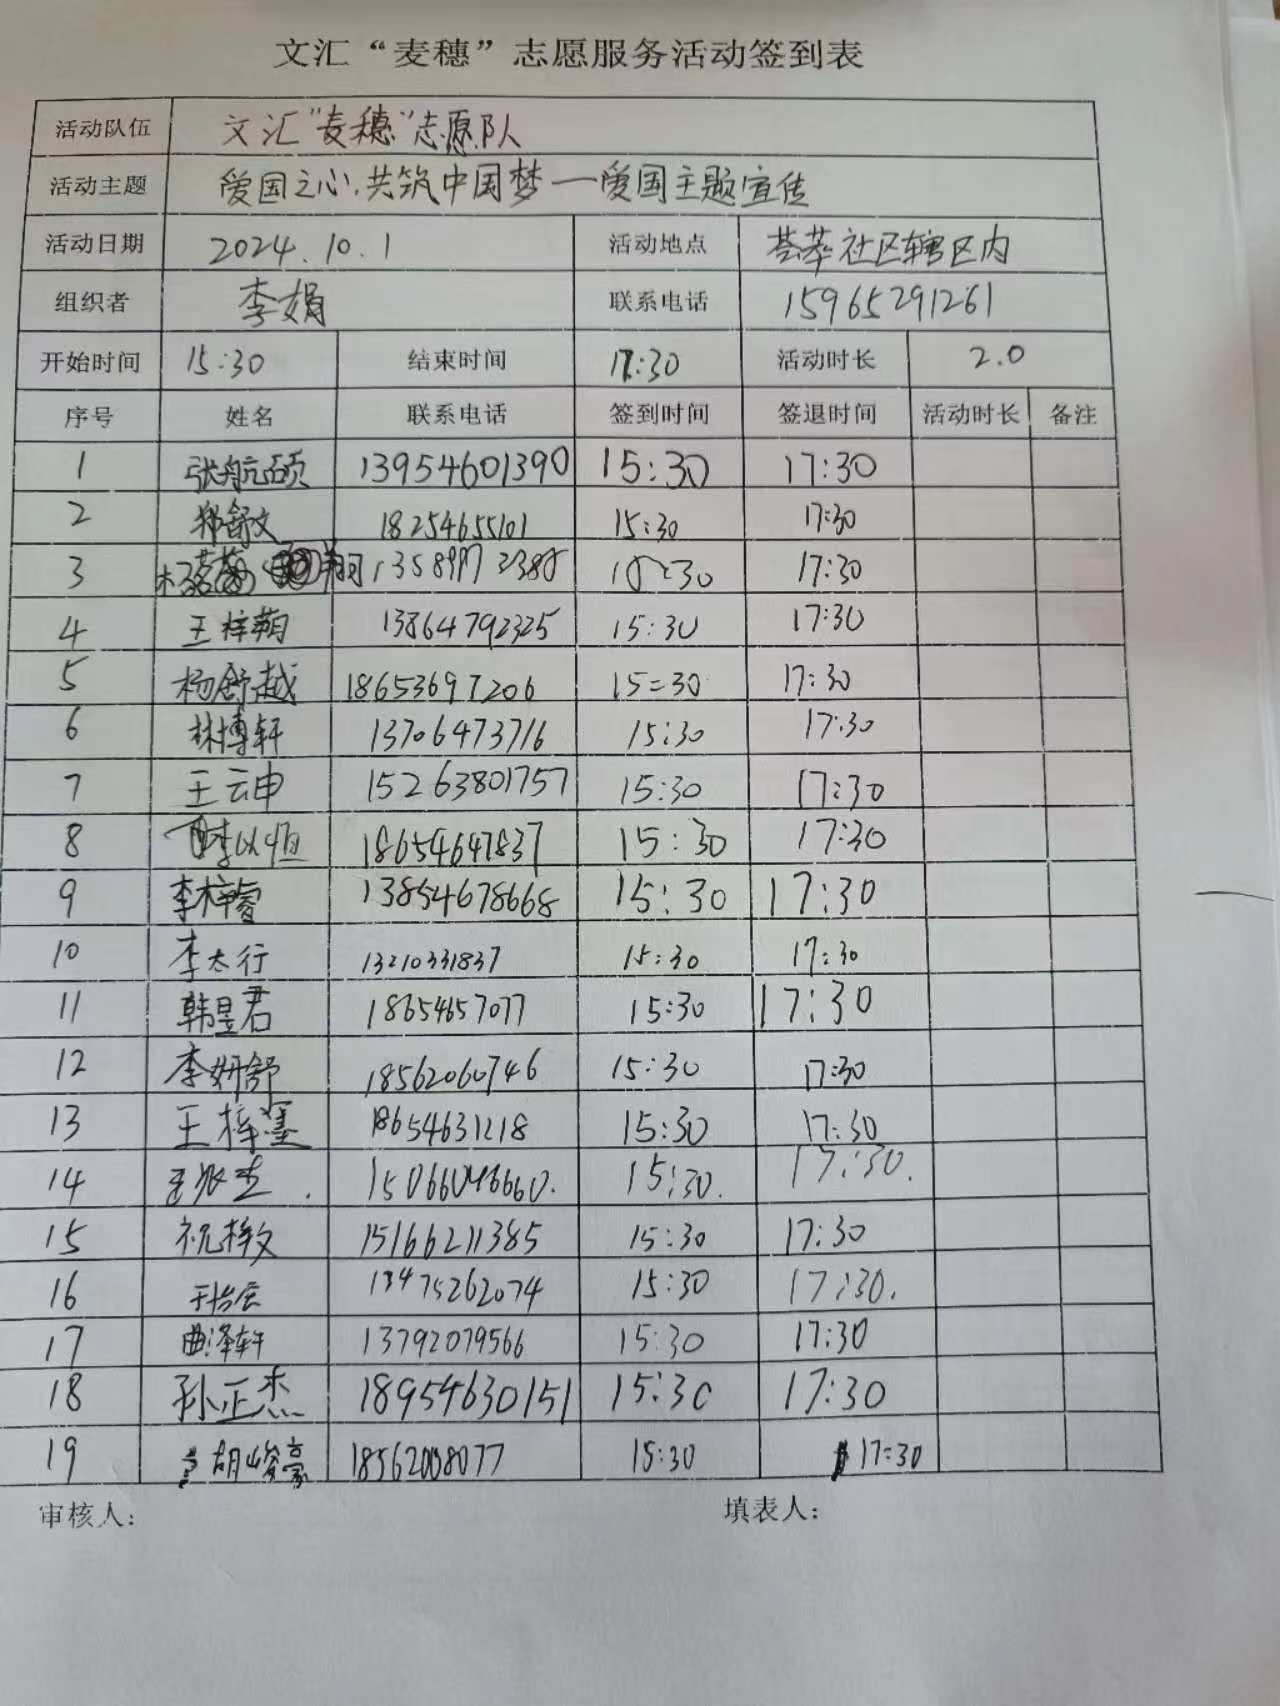 文汇“麦穗”志愿服务活动签到表
活动队伍 文汇“麦穗”志愿队
活动主题 爱国之心,共筑中国梦一爱国主题宣传
活动日期 2024.10.1 活动地点 荟萃社区辖区内
组织者 李娟 联系电话 15965291261
开始时间 15:30 结束时间 17:30 活动时长 2.0
序号 姓名 联系电话 签到时间 签退时间 活动时长 备注
1 张航硕 13954601390 15:30 17:30
2 郑舒文 18254655101 15:30 17:30
3 15:30 17:30
4 王梓萌 13864792325 15:30 17:30
5 杨舒越 18653697206 15:30 17:30
6 林博轩 13706473716 15:30 17:30
7 王云申 15263801757 15:30 17:30
8 李以恒 18654647837 15:30 17:30
9 李梓睿 13854678668 15:30 17:30
10 李太行 13210331837 15:30 17:30
11 韩昱君 18654657077 15:30 17:30
12 李妍舒 18562060746 15:30 17:30
13 王梓墨 18654631218 15:30 17:30
14 15066046660. 15:30. 17:30.
15 祝梓文 15166211385 15:30 17:30
16 13475262074 15:30 17:30.
17 曲泽轩 13792079566 15:30 17:30
18 孙正杰 18954630151 15:30 17:30
19 胡峻豪 18562008077 15:30 17:30
审核人: 填表人: